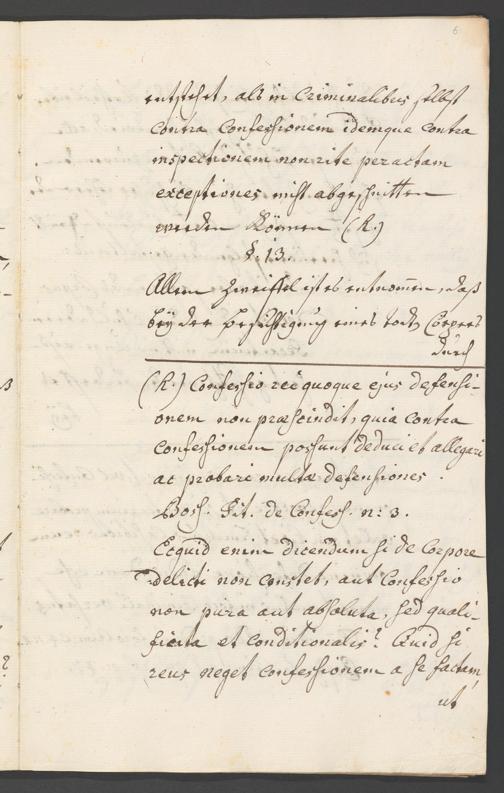 6
entstehet, als in Criminalibus selbst
contra Confessionem idemque contra
inspectionem non rite peractam
exceptiones nicht abgeschnitten
werden können (R.)
§. 13.
Allem Zweiffel ist es entnom̄en, daß
bey der besichtigung eines todt Cörpers
durch
(R.) Confessio rei quoque ejus defensi-
onem non præscindit, quia contra
Confessionem possunt deduci et allegari
ac probari multæ defensiones.
Boss. Tit. de Confess. n: 3.
Ecquid enim dicendum si de Corpore
delicti non constet, aut Confessio
non pura aut absoluta, sed quali-
ficata et conditionalis? Quid si
reus neget confessionem a se factam,
ut